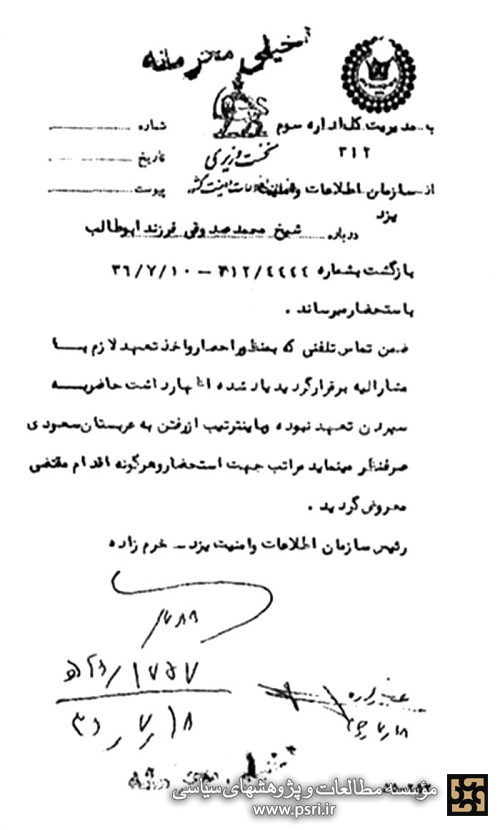 خیلی محترمانه
به مدیریت کل اداره سوم
۳۱۲
شماره
نخست وزیری
تاریخ
از سازمان اطلاعات و امنیت کشور
پیوست
یزد
درباره شیخ محمد صدوقی فرزند ابوطالب
بازگشت بشماره ۳۱۲/۴۴۴۴ – ۳۶/۷/۱۰
باستحضار میرساند .
ضمن تماس تلفنی که بمنظور احضار و اخذ تعهد لازم با
مشارالیه برقرار گردید یاد شده اظهار داشت حاضر به
سپردن تعهد نبوده و باینترتیب از رفتن به عربستان سعودی
صرفنظر مینماید مراتب جهت استحضار و هرگونه اقدام مقتضی
معروض گردید .
رئیس سازمان اطلاعات و امنیت یزد – خرم زاده
مؤسسه مطالعات و پژوهشهای سیاسی
www.psri.ir